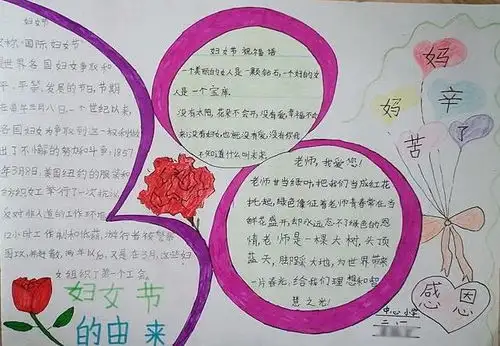 妇女节
"国际妇女节"
世界各国妇女争取和
平、平等、发展的节日,节期
在每年3月八日,一个世纪以来,
各国妇女为争取到这一权利做
出了不懈的努力和斗争,1857
年3月8日,美国纽约的服装和
纺织女工举行了一次抗议
反对非人道的工作环境
12小时工作制和低薪,游行者被警察
围攻,并赶散,两年以后,又是在3月,这些妇
女组织了第一个工会。
妇女节
的由来
妇女节祝福语
一个美丽的女人是一颗钻石,一个好的女
人是一个宝库
没有太阳,花朵不会开,没有爱,幸福不会
来,没有妇女,也就没有爱,没有你我
不知道什么叫未来
老师,我爱您!
老师甘当绿叶,把我们当成红花
托起,绿色像征着老师青春常在,当
鲜花盛开,却永远忘不了绿色的恩
情,老师是一棵大树,头顶
蓝天,脚踩大地,为世界带来
一片春光,给我们理想和智
慧之光!
妈
妈
辛
苦
了
感恩
中心小学
二、